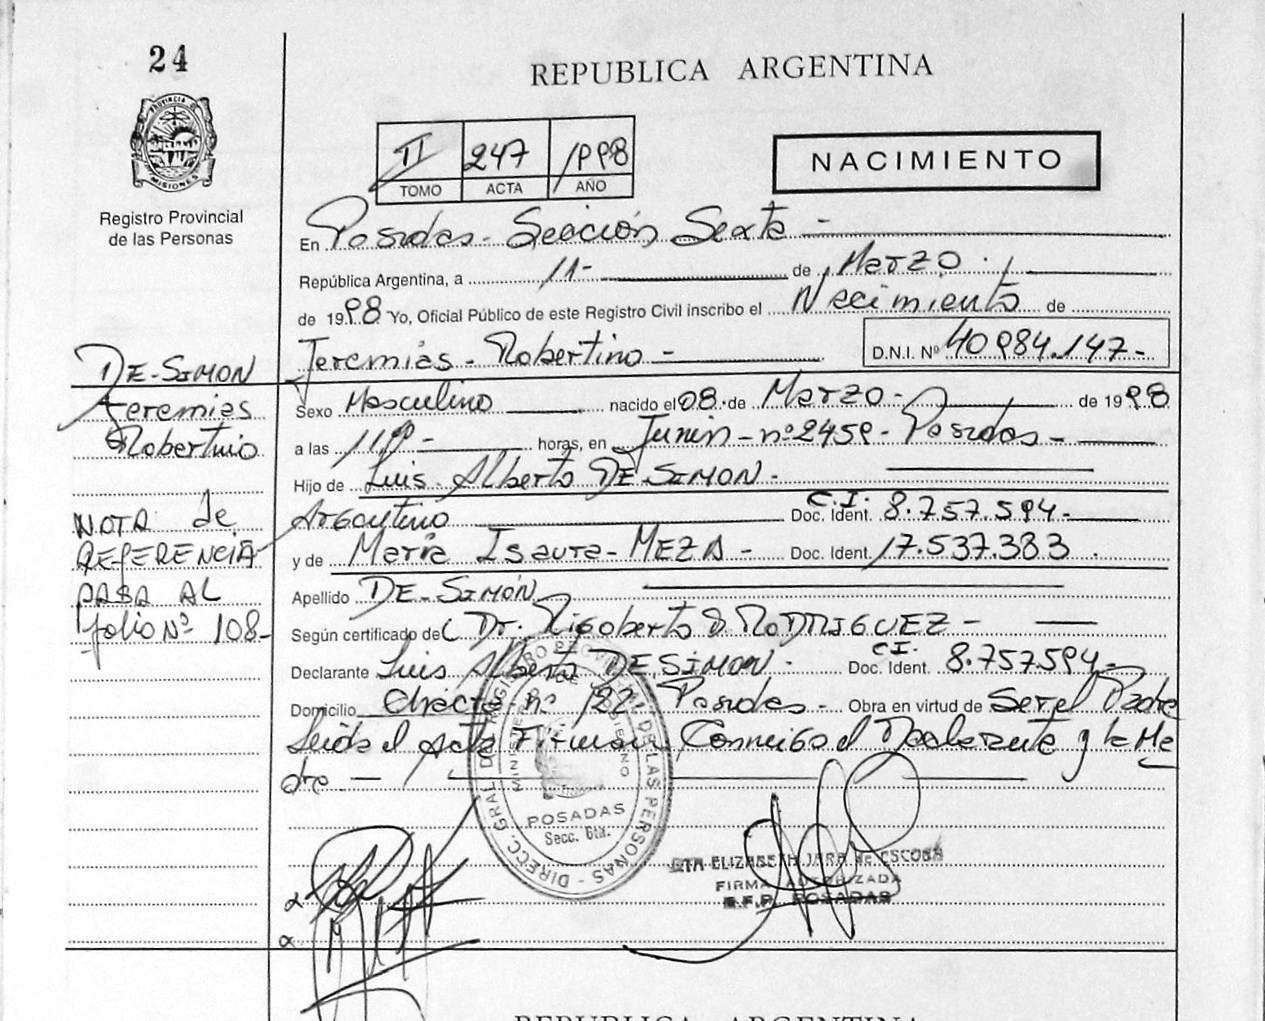 24
REPUBLICA ARGENTINA
PROVINCIA DE MISIONES
Registro Provincial
de las Personas
II 247 1998
TOMO ACTA AÑO
NACIMIENTO
En Posadas - Sección Sexta -
República Argentina, a 11- de Marzo
de 1998 Yo, Oficial Público de este Registro Civil inscribo el Nacimiento de
Jeremías - Robertino - D.N.I. Nº 40984.147-
DE-SIMON
Jeremias
Robertino
NOTA de
REFERENCIA
PASA AL
folio Nº 108-
Sexo Masculino nacido el 08 de Marzo - de 1998
a las 11 horas, en Junin - nº 2459 - Posadas -
Hijo de Luis Alberto DE SIMON -
Argentino C.I. Doc. Ident. 8.757.594-
y de María Isaura - MEZA - Doc. Ident. 17.537.383
Apellido DE-SIMON
Según certificado del Dr. Rigoberto D RODRIGUEZ -
Declarante Luis Alberto DE SIMON - C.I. Doc. Ident. 8.757.594-
Domicilio nº 122 Posadas - Obra en virtud de Ser el Padre
Leida el Acta Firman Conmigo el Declarante y la Ma
dre -
DIRECC. GRAL. DE REGISTRO PROVINCIAL DE LAS PERSONAS
MINISTERIO DE GOBIERNO
POSADAS
Secc. 6ta.
ELIZABETH JARA de ESCOBAR
FIRMA AUTORIZADA
POSADAS
REPUBLICA ARGENTINA